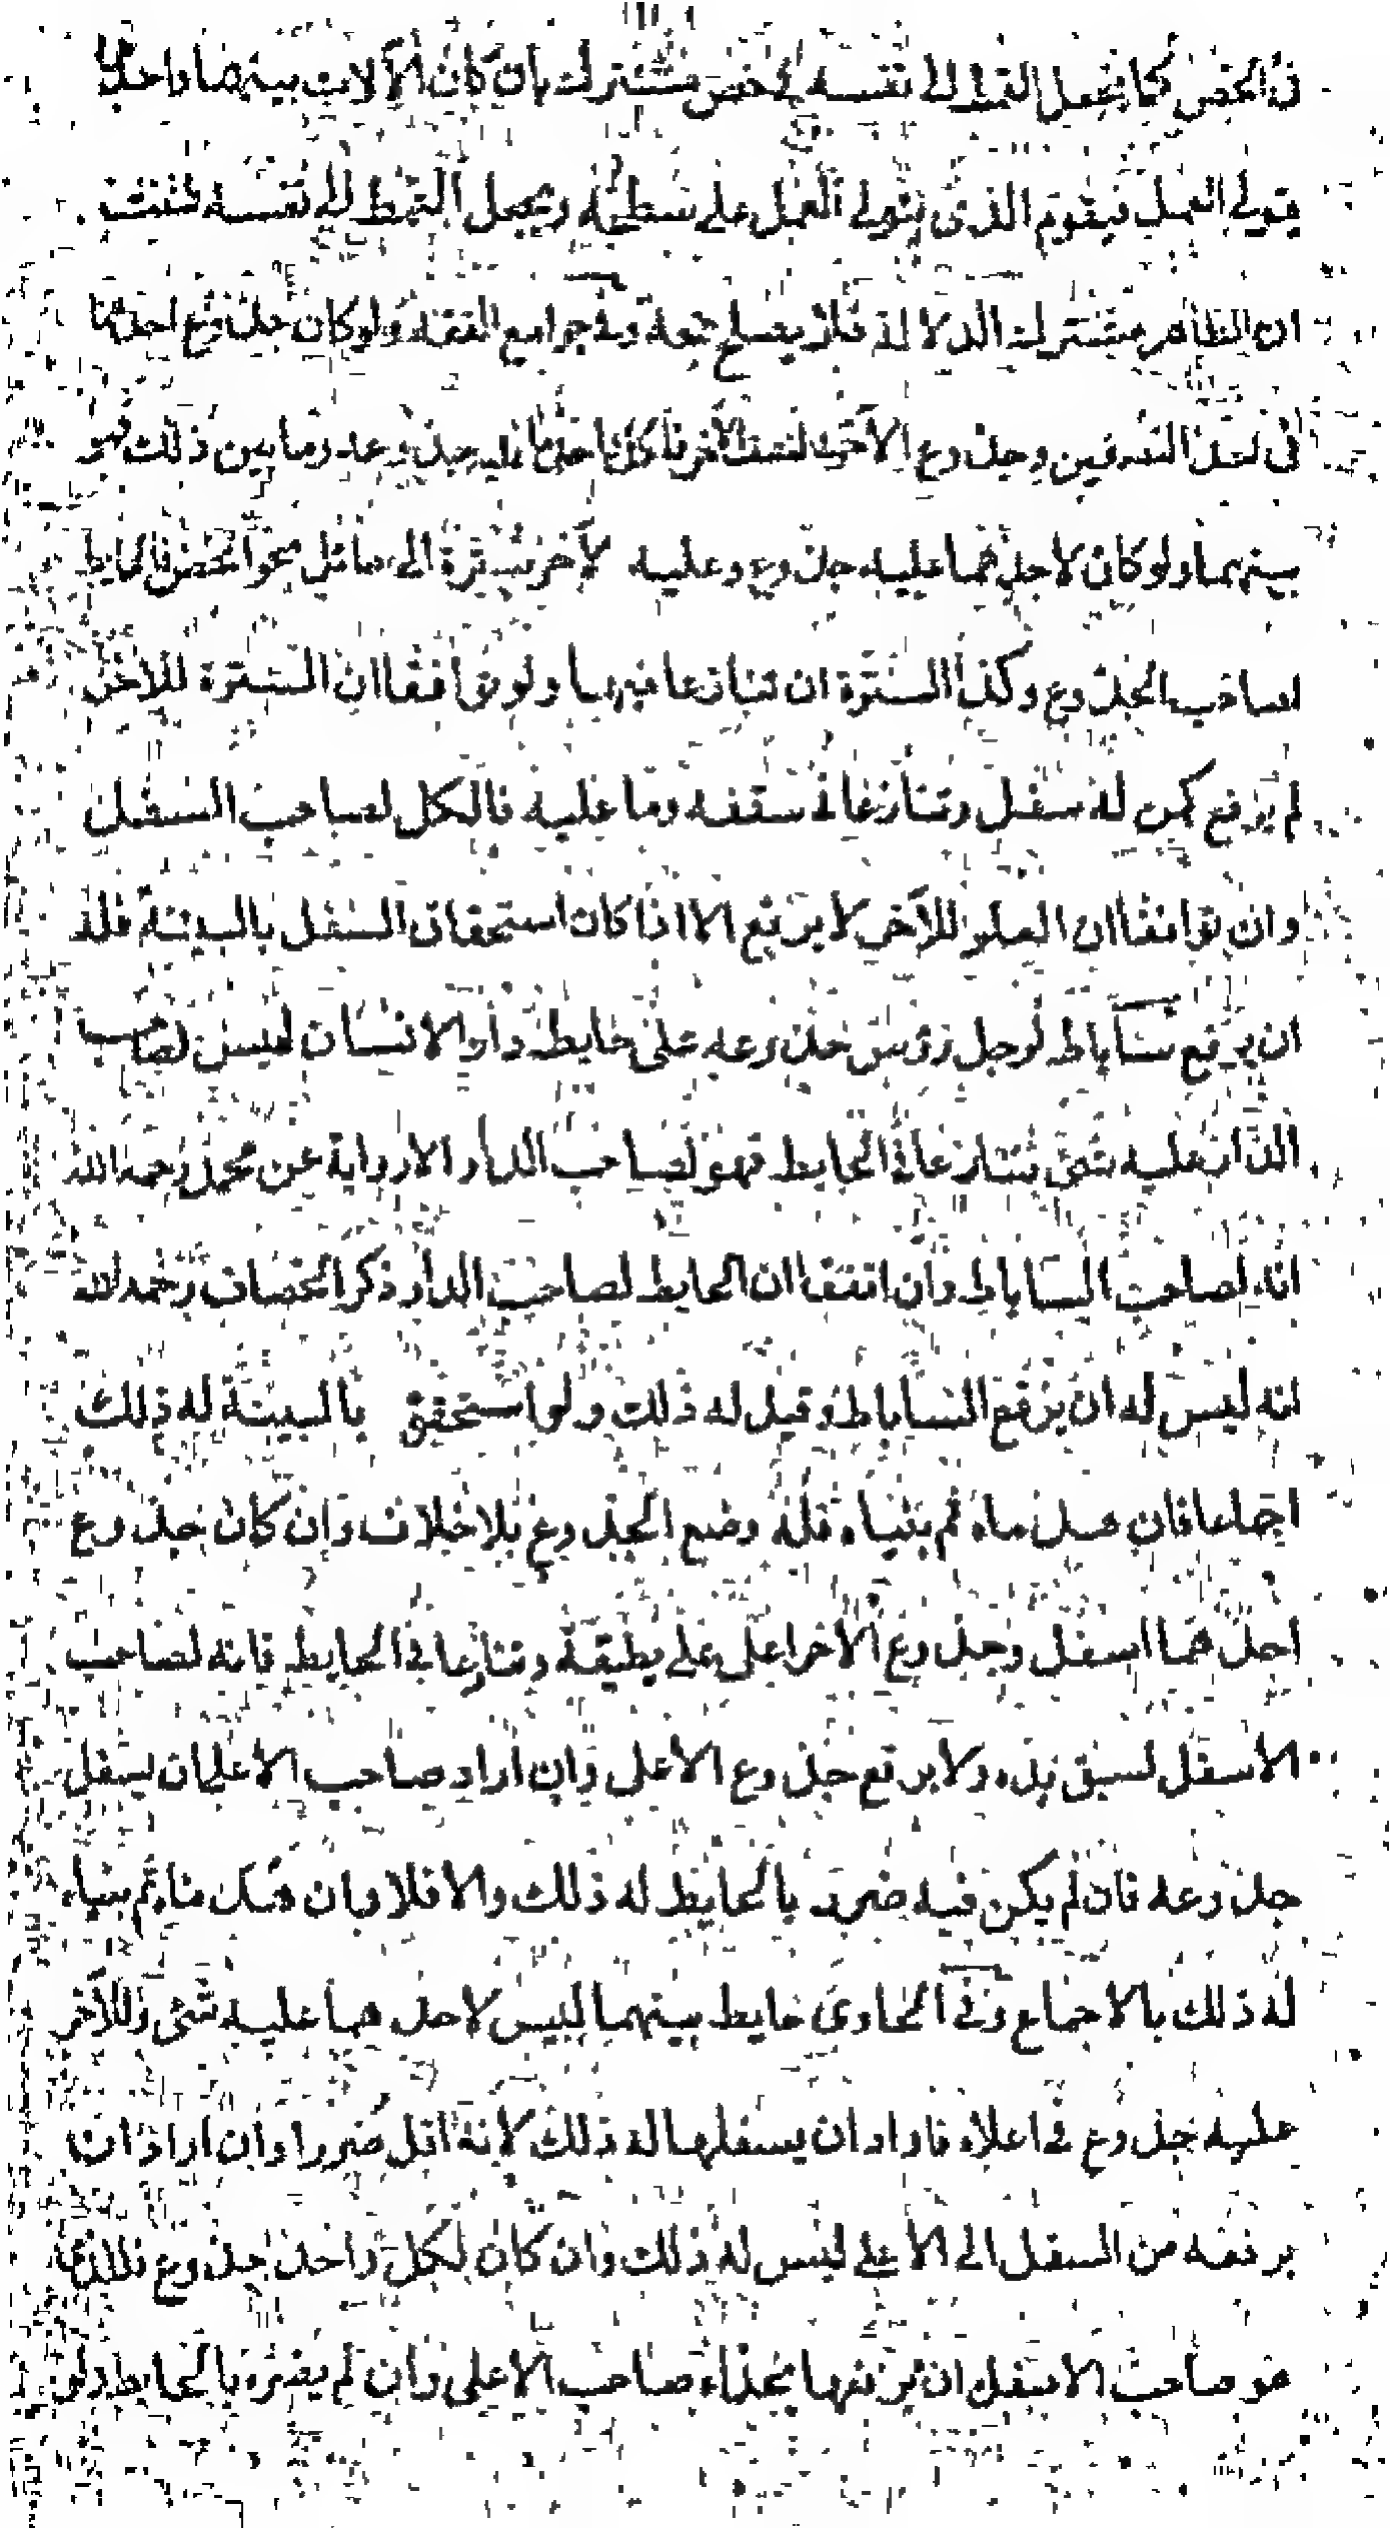 في الخص كما يجعل القمط الى نفسه في خص مشترك بان كان الآلات بينهما واحدهما
يتولى العمل فيقوم الذي يتولى العمل على سطحه ويجعل القمط الى نفسه فثبت
ان الظاهر مشترك الدلالة فلا يصلح حجة وفي جوامع الفقه ولو كان جذوع احدهما
في احد النصفين وجذوع الآخر في النصف الآخر فلكل واحد ما عليه جذوعه وما بين ذلك فهو
بينهما ولو كان لاحدهما عليه جذوع وعليه لآخر سترة الى ما مثل نحو الخص فالحايط
لصاحب الجذوع وكذا السترة ان تنازعا فيهما ولو توافقا ان السترة للآخر
لم يرفع كمن له سفل وتنازعا في سقفه وما عليه فالكل لصاحب السفل
وان توافقا ان العلو للآخر لا يرتفع الا اذا كان استحقاق السفل بالبينة فله
ان يرفع ساباط لرجل رؤس جذوعه على حايط دار الانسان ليس لصاحب
الدار عليه شئ تنازعا في الحايط فهو لصاحب الدار الا رواية عن محمد رحمه الله
انه لصاحب الساباط وان اتفقا ان الحايط لصاحب الدار ذكر الخصاف رحمه الله
انه ليس له ان يرفع الساباط وقيل له ذلك ولو استحق بالبينة له ذلك
اجماعا فان هدماه ثم بنياه فله وضع الجذوع بلا خلاف وان كان جذوع
احدهما اسفل وجذوع الآخر اعلى على طبقة وتنازعا في الحايط فانه لصاحب
الاسفل لسبق يده ولا يرفع جذوع الاعلى وان اراد صاحب الاعلى ان يسفل
جذوعه فان لم يكن فيه ضرر بالحايط له ذلك والا فلا وان هدماه ثم بنياه
له ذلك بالاجماع وفي الحاوي حايط بينهما ليس لاحدهما عليه شئ وللآخر
عليه جذوع في اعلاه فاراد ان يسفلها له ذلك لانه اقل ضررا وان اراد ان
يرفعه من السفل الى الاعلى ليس له ذلك وان كان لكل واحد جذوع فللذي
هو صاحب الاسفل ان يرفعها بحذاء صاحب الاعلى وان لم يضره بالحايط ولو